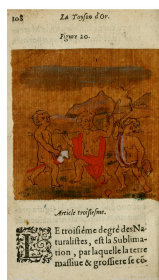 108 La Toyson d'Or.
Figure 20.
Article troisiesme.
LE troisiéme degré des Na-
turalistes, est la Sublima-
tion, par laquelle la terre
massiue & grossiere se cō-